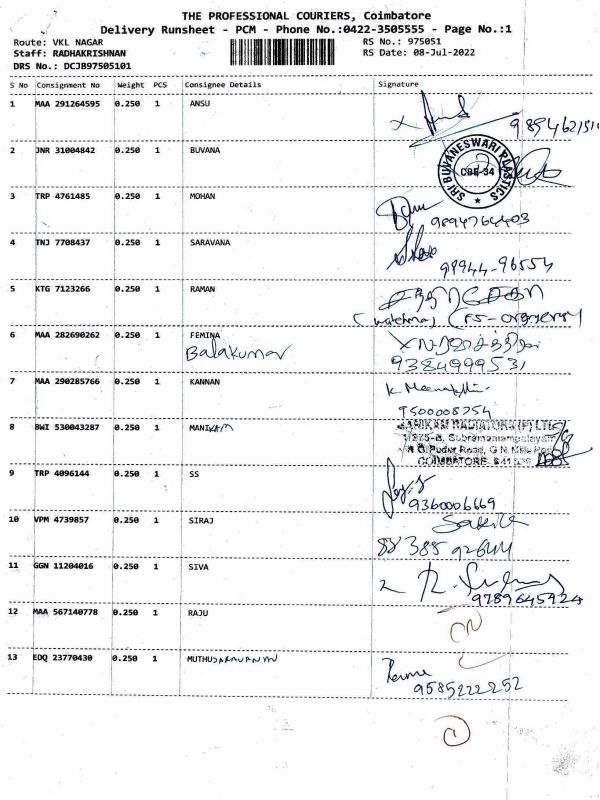 THE PROFESSIONAL COURIERS, Coimbatore
Delivery Runsheet - PCM - Phone No.:0422-3505555 - Page No.:1
Route: VKL NAGAR
RS No.: 975051
Staff: RADHAKRISHNAN
RS Date: 08-Jul-2022
DRS No.: DCJB97505101
S No Consignment No Weight PCS Consignee Details Signature
1 MAA 291264595 0.250 1 ANSU
2 JNR 31004842 0.250 1 BUVANA
SRI BUVANESWARI PLASTICS
CBE-34
3 TRP 4761485 0.250 1 MOHAN
9894764403
4 TNJ 7708437 0.250 1 SARAVANA
99944-96554
5 KTG 7123266 0.250 1 RAMAN
6 MAA 282690262 0.250 1 FEMINA
Balakumar
9384999531
7 MAA 290285766 0.250 1 KANNAN
K. Meenakshi
9500008254
8 BWI 530043287 0.250 1 MANIKAM
COIMBATORE
9 TRP 4096144 0.250 1 SS
9360006669
10 VPM 4739857 0.250 1 SIRAJ
11 GGN 11204016 0.250 1 SIVA
9789645924
12 MAA 567140778 0.250 1 RAJU
13 EDQ 23770430 0.250 1 MUTHUSARAVANAN
9585222252